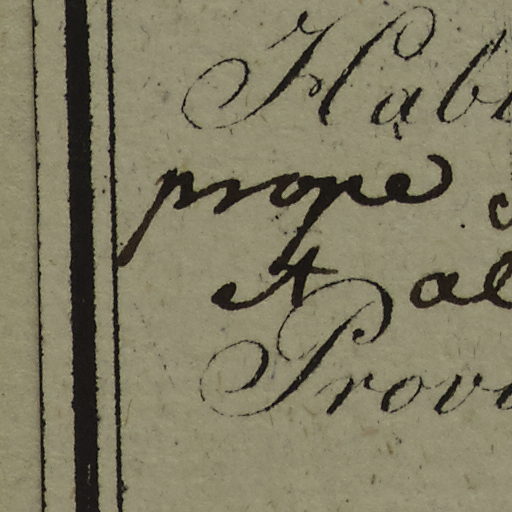 Hab
prope
et al
Prov